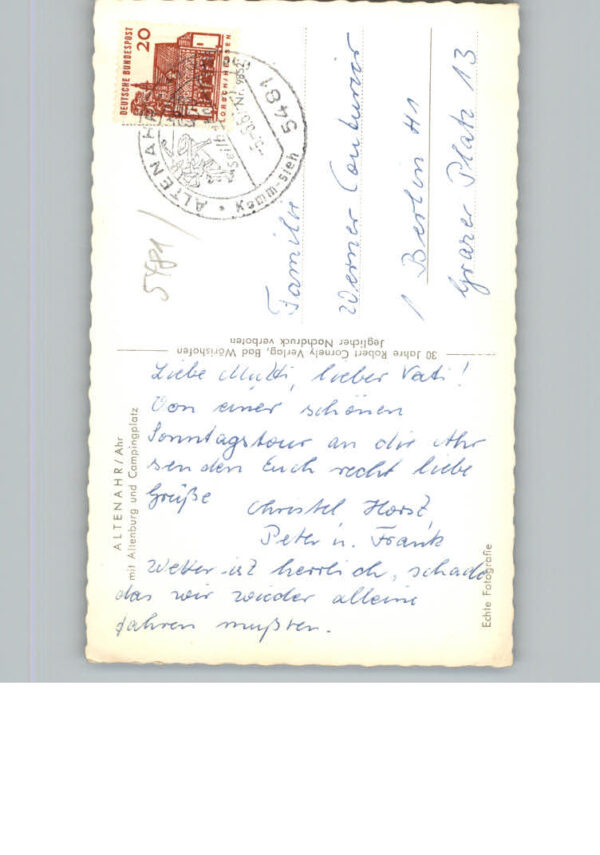 DEUTSCHE BUNDESPOST
20
LORSCH/HESSEN
5481
ALTENAHR
Komm-sieh
5481
Familie
Werner
1 Berlin 41
Grazer Platz 13
30 Jahre Robert Cornely Verlag, Bad Wörishofen
Jeglicher Nachdruck verboten
ALTENAHR/Ahr
mit Altenburg und Campingplatz
Echte Fotografie
Liebe Mutti, lieber Vati!
Von einer schönen
Sonntagstour an die Ahr
senden Euch recht liebe
Grüße Christel Horst
Peter u. Frank
Wetter ist herrlich, schade
das wir wieder alleine
fahren mußten.